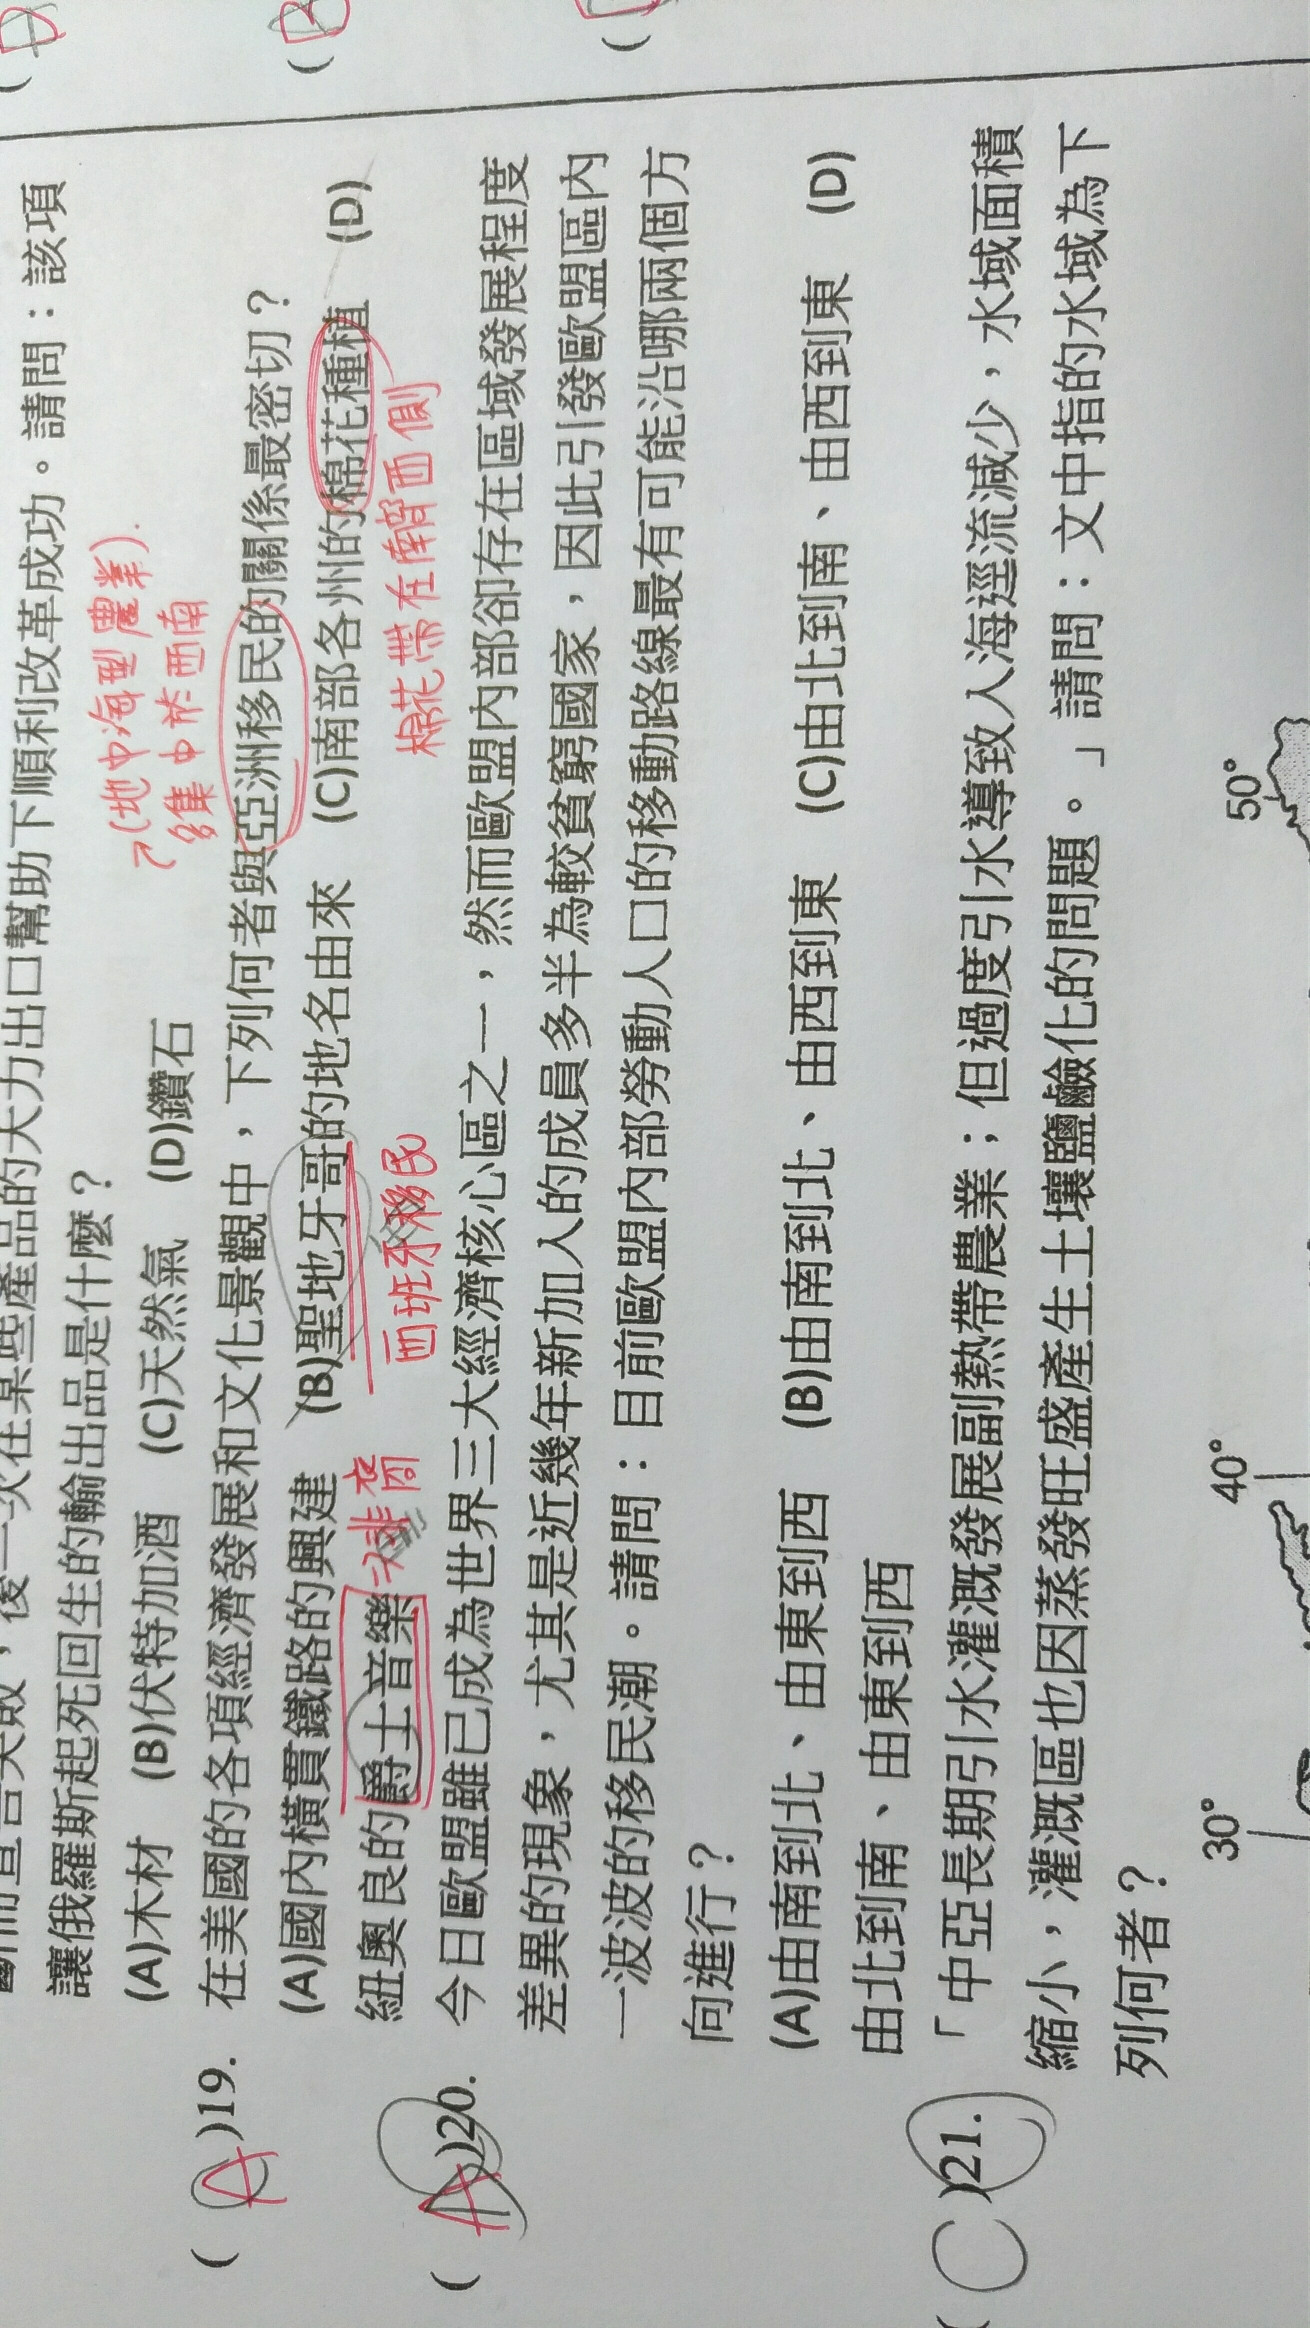 讓俄羅斯起死回生的輸出品是什麼？
(A)木材 (B)伏特加酒 (C)天然氣 (D)鑽石
→(地中海型農業).
多集中於西南
( A )19. 在美國的各項經濟發展和文化景觀中，下列何者與亞洲移民的關係最密切？
(A)國內橫貫鐵路的興建 (B)聖地牙哥的地名由來 (C)南部各州的棉花種植 (D)
紐奧良的爵士音樂→非裔 西班牙移民 棉花帶在南部西側
( A )20. 今日歐盟雖已成為世界三大經濟核心區之一，然而歐盟內部卻存在區域發展程度
差異的現象，尤其是近幾年新加入的成員多半為較貧窮國家，因此引發歐盟區內
一波波的移民潮。請問：目前歐盟內部勞動人口的移動路線最有可能沿哪兩個方
向進行？
(A)由南到北、由東到西 (B)由南到北、由西到東 (C)由北到南、由西到東 (D)
由北到南、由東到西
( C )21. 「中亞長期引水灌溉發展副熱帶農業；但過度引水導致入海逕流減少，水域面積
縮小，灌溉區也因蒸發旺盛產生土壤鹽鹼化的問題。」請問：文中指的水域為下
列何者？
30° 40° 50°